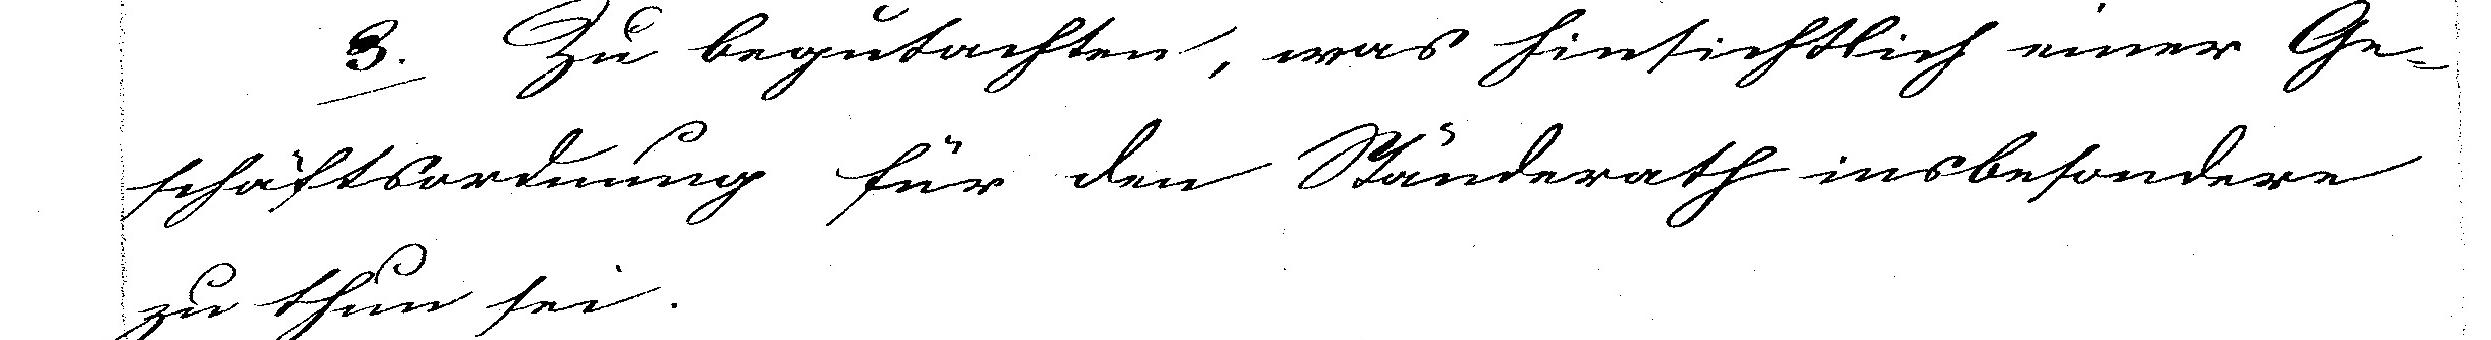 3. Zu begutachten, was hinsichtlich einer Ge-
schäftsordnung für den Ständerath insbesondere
zu thun sei.